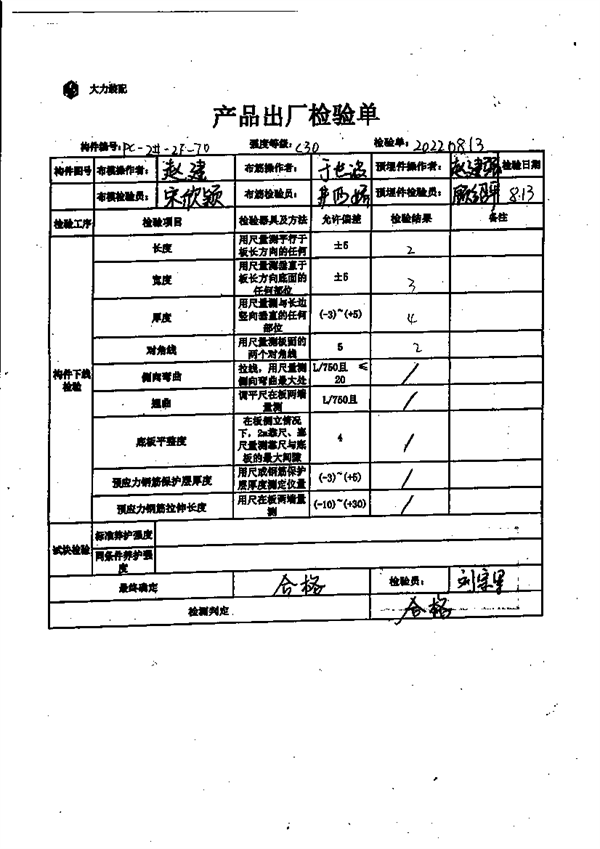 大力装配
产品出厂检验单
构件编号：PC-2#-2F-70 强度等级：C30 检验单：20220813
构件图号 布模操作者： 赵建 布筋操作者： 预埋件操作者： 赵建强 检验日期
布模检验员： 宋欣颖 布筋检验员： 预埋件检验员： 8.13
检验工序 检验项目 检验器具及方法 允许偏差 检验结果 备注
构件下线检验
长度 用尺量测平行于板长方向的任何 ±5 2
宽度 用尺量测垂直于板长方向底面的任何部位 ±5 3
厚度 用尺量测与长边竖向垂直的任何部位 (-3)~(+5) 4
对角线 用尺量测板面的两个对角线 5 2
侧向弯曲 拉线，用尺量测侧向弯曲最大处 L/750且 ≤20 /
翘曲 调平尺在板两端量测 L/750且 /
底板平整度 在板侧立情况下，2m靠尺、塞尺量测靠尺与底板的最大间隙 4 /
预应力钢筋保护层厚度 用尺或钢筋保护层厚度测定仪量 (-3)~(+5) /
预应力钢筋拉伸长度 用尺在板两端量测 (-10)~(+30) /
试块检验 标准养护强度
同条件养护强度
最终确定 合格 检验员：
检测判定 合格